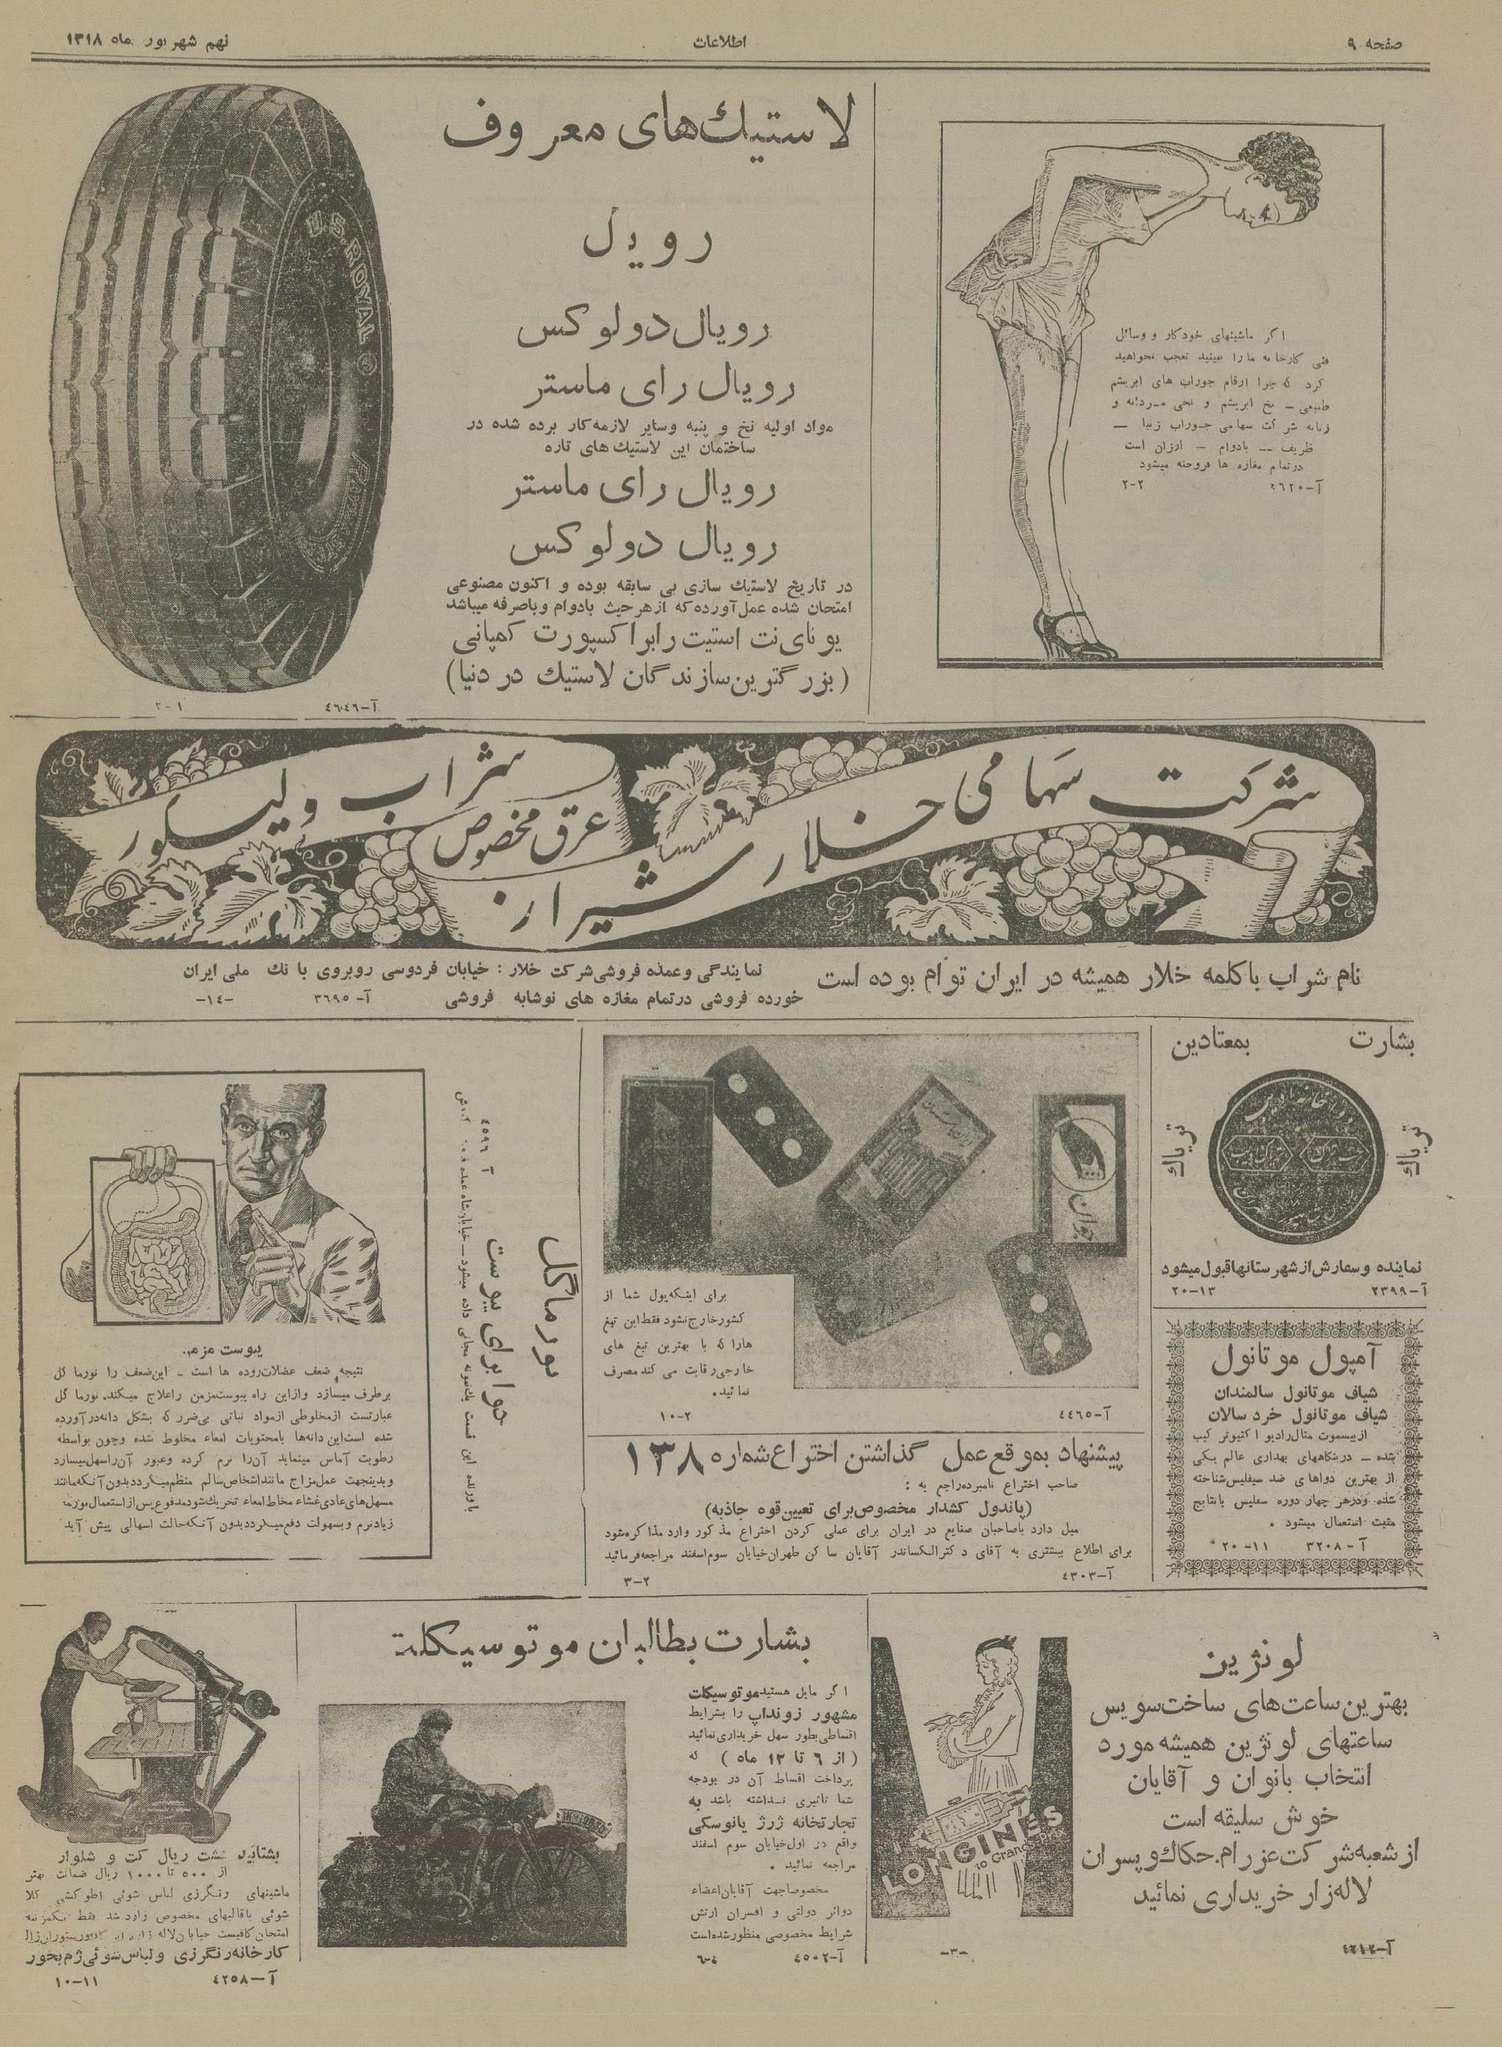 صفحه ۹
اطلاعات
نهم شهریور ماه ۱۳۱۸
اگر ماشینهای خودکار و وسائل
فنی کارخانه ما را ببینید تعجب نخواهید
کرد که چرا ارقام جوراب های ابریشم
طبیعی – نخ ابریشم و نخی مردانه و
زنانه شرکت سهامی جوراب زیبا –
ظریف – بادوام – ارزان است
درتمام مغازه ها فروخته میشود
آ–۴۶۲۰
۲-۲
لاستیك‌های معروف
رویل
رویال دولوکس
رویال رای ماستر
مواد اولیه نخ و پنبه وسایر لازمه کار برده شده در
ساختمان این لاستیك های تازه
رویال رای ماستر
رویال دولوکس
در تاریخ لاستیك سازی بی سابقه بوده و اکنون مصنوعی
امتحان شده عمل آورده که از هر حیث بادوام و باصرفه میباشد
یونای‌نت استیت رابر اکسپورت کمپانی
(بزرگترین سازندگان لاستیك در دنیا)
U.S. ROYAL
آ–۴۶۰۴۶
۲-۱
شرکت سهامی خلار شیراز
شراب ولیکور
عرق مخصوص
نام شراب با کلمه خلار همیشه در ایران توأم بوده است
نمایندگی وعمده فروشی شرکت خلار : خیابان فردوسی روبروی بانك ملی ایران
خورده فروشی درتمام مغازه های نوشابه فروشی
آ- ۳۶۹۵
-۱۴-
بشارت بمعتادین
تریاك
تریاك
نماینده و سفارش از شهرستانها قبول میشود
آ–۲۳۹۹
۲۰-۱۳
آمپول موتانول
شیاف موتانول سالمندان
شیاف موتانول خرد سالان
از بیسموت متال رادیو اکتیوتر کیب
شده – دربنگاههای بهداری عالم یکی
از بهترین دواهای ضد سیفلیس شناخته
شده ودرهر چهار دوره سفلیس بانتایج
مثبت استعمال میشود .
آ – ۳۲۰۸
۲۰-۱۱
برای اینکه پول شما از
کشور خارج نشود فقط این تیغ
هارا که با بهترین تیغ های
خارجی رقابت می کند مصرف
نمائید.
۱۰-۲
آ–۴۴۶۵
پیشنهاد بموقع عمل گذاشتن اختراع شماره ۱۳۸
صاحب اختراع نامبرده راجع به :
(پاندول کشدار مخصوص برای تعیین قوه جاذبه)
میل دارد باصاحبان صنایع در ایران برای عملی کردن اختراع مذکور وارد مذاکره شود
برای اطلاع بیشتری به آقای دکتر الکساندر آقایان ساکن طهران خیابان سوم اسفند مراجعه فرمائید
آ–۴۳۰۳
۳-۲
نورماگل
دوا برای یبوست
آ ۴۵۹۶
یبوست مزمن
نتیجه ضعف عضلات روده ها است – این ضعف را نورما گل
برطرف میسازد و از این راه یبوست مزمن را علاج میکند. نورما گل
عبارتست از مخلوطی از مواد نباتی بی‌ضرر که بشکل دانه در آورده
شده است این دانه‌ها بامحتویات امعاء مخلوط شده وچون بواسطه
رطوبت آماس مینماید آن را نرم کرده وعبور آن را سهل میسازد
وبدینجهت عمل مزاج مانند اشخاص سالم منظم میگردد بدون آنکه مانند
مسهل‌های عادی غشاء مخاط امعاء تحریك شود مدفوع پس از استعمال نورما
زیاد نرم و بسهولت دفع میگردد بدون آنکه حالت اسهالی پیش آید
لونژین
بهترین ساعت‌های ساخت سویس
ساعتهای لونژین همیشه مورد
انتخاب بانوان و آقایان
خوش سلیقه است
از شعبه شرکت عزرا م. حکاك و پسران
لاله‌زار خریداری نمائید
LONGINES
10 Grands Prix
-۳-
بشارت بطالبان موتوسیکلت
اگر مایل هستید موتوسیکلت
مشهور زونداپ را بشرایط
اقساطی بطور سهل خریداری نمائید
(از ۶ تا ۱۲ ماه) که
پرداخت اقساط آن در بودجه
شما تأثیری نداشته باشد به
تجارتخانه ژرژ یانوسکی
واقع در اول خیابان سوم اسفند
مراجعه نمائید .
مخصوصا جهت آقایان اعضاء
دوائر دولتی و افسران ارتش
شرایط مخصوصی منظور شده است
آ–۴۵۰۲
۶-۴
بشتابید هشت ریال کت و شلوار
از ۵۰۰ تا ۱۰۰۰ ریال ضمانت بهتر
ماشینهای رنگرزی لباس شوئی اطوکشی کلا
شوئی باقالبهای مخصوص وارد شد فقط یکمرتبه
امتحان کافیست خیابان لاله زار
کارخانه رنگرزی و لباس شوئی ژم بخور
آ–۴۲۵۸
۱۰-۱۱